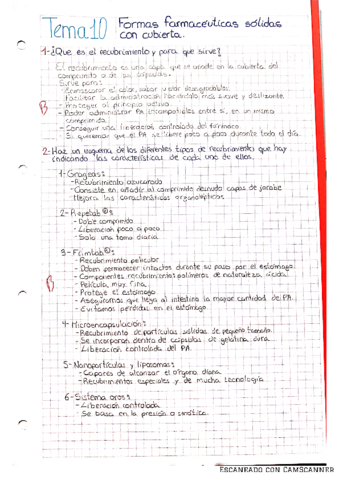 Tema 10 Formas farmaceuticas sólidas
con cubierta.
1-¿Que es el recubrimiento y para que sirve?
El recubrimiento es una capa que se añade en la cubierta del
comprimido o de las cápsulas.
Sirve para:
- Enmascarar el color, sabor u olor desagradables.
- Facilitar la administración haciéndolo más suave y deslizante.
- Proteger al principio activo.
- Poder administrar PA incompatibles entre sí, en un mismo
comprimido.
- Conseguir una liberación controlada del fármaco.
- Si queremos que el PA se libere poco a poco durante todo el día.
2-Haz un esquema de los diferentes tipos de recubrimiento que hay
indicando las características de cada uno de ellos.
1-Grageas:
- Recubrimiento azucarado
- Consiste en añadir al comprimido desnudo capas de jarabe
- Mejora las características organolépticas
2-Repetab®:
- Doble comprimido
- Liberación poco a poco
- Solo una toma diaria
3-Filmtab®:
- Recubrimiento pelicular
- Deben permanecer intactos durante su paso por el estómago.
- Componentes recubrimiento polímeros de naturaleza ácida.
- Película muy fina.
- Protege el estómago
- Aseguramos que llega al intestino la mayor cantidad del PA.
- Evitamos perdidas en el estómago.
4-Microencapsulación:
- Recubrimiento de partículas sólidas de pequeño tamaño.
- Se incorporan dentro de cápsulas de gelatina dura.
- Liberación controlada del PA.
5-Nanopartículas y liposomas:
- Capaces de alcanzar el órgano diana
- Recubrimientos especiales y de mucha tecnología
6-Sistema oros:
- Liberación controlada
- Se basa en la presión osmótica.
ESCANEADO CON CAMSCANNER